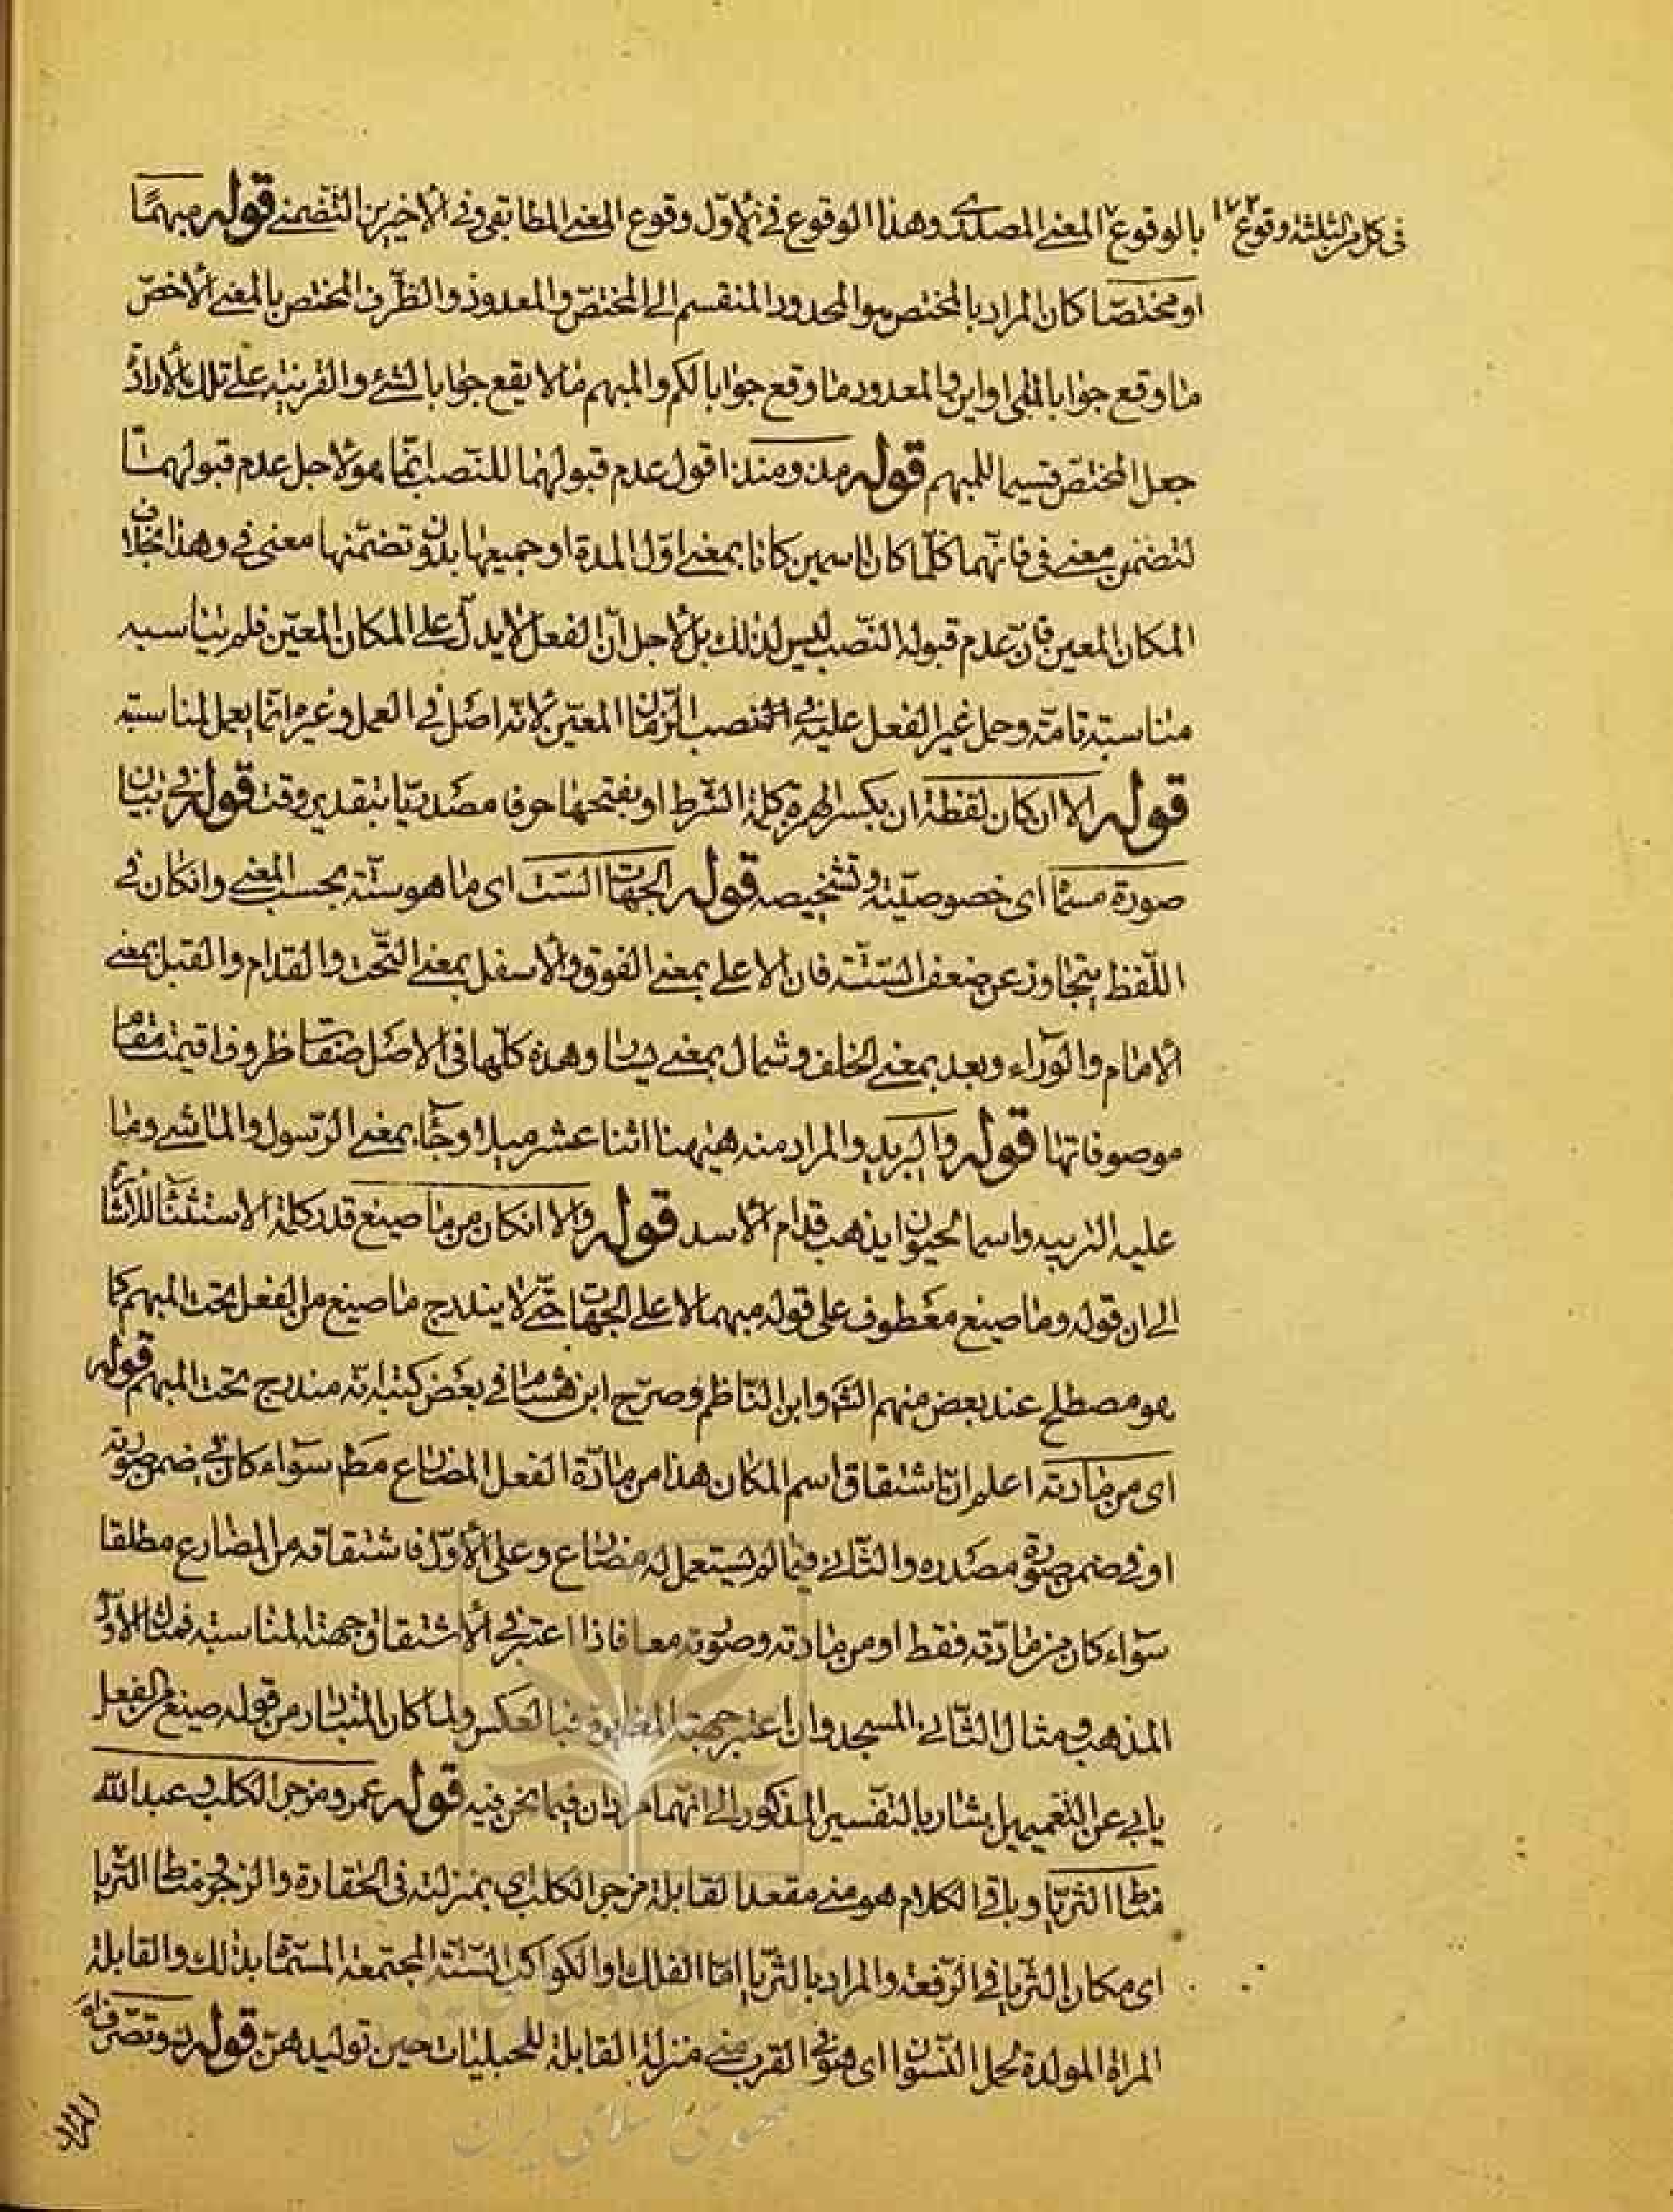 فى كل من الثلثة وقوع ١٧٢ بالوقوع المعنى المصدرى وهذا الوقوع فى الاول وقوع المعنى المطابقى وفى الاخيرين التضمنى قوله مبهمًا
او مختصّا كان المراد بالمختص هو المحدود المنقسم الى المختصّ والمعدود والظّرف المختص بالمعنى الأخصّ
ما وقع جوابا لمتى او اين والمعدود ما وقع جوابا لكم والمبهم ما لا يقع جوابا لشئ والقرينة على تلك الارادة
جعل المختصّ قسيما للمبهم قوله مذ ومنذ اقول عدم قبولهما للنّصب انّما هو لاجل عدم قبولهما
لتضمن معنى فى فانّهما كلّما كانا اسمين كانا بمعنى اوّل المدة او جميعها بدون تضمّنها معنى فى وهذا بخلاف
المكان المعين فانّ عدم قبوله النّصب ليس لذلك بل لاجل انّ الفعل لا يدلّ على المكان المعيّن فلم يناسبه
مناسبة تامّة وحمل غير الفعل عليه فى نصب الزّمان المعيّن لانّه اصل فى العمل وغيره انّما يعمل لمناسبته
قوله الا ان كان لفظة ان بكسر الهمزة كلمة الشّرط او بفتحها حرفا مصدريّا بتقدير وقت قوله فى بيان
صورة مسمّا اى خصوصيّته وتشخيصه قوله الجهات السّت اى ما هو ستّة بحسب المعنى وان كان فى
اللّفظ يتجاوز عن ضعف السّتّة فان الاعلى بمعنى الفوق والأسفل بمعنى التّحت والقدام والقبل بمعنى
الأمام والورآء وبعد بمعنى الخلف وشمال بمعنى يسار وهذه كلّها فى الاصل صفات ظروف اقيمت مقام
موصوفاتها قوله والبريد والمراد منه هيهنا اثنا عشر ميلا وجآء بمعنى الرّسول والماشى وما
عليه الترتيب واسم لحيوان يذهب قدام الأسد قوله والا ان كان من ما صيغ قدر كلمة الاستثنآء للاشارة
الى ان قوله وما صيغ معطوف على قوله مبهما لا على الجهات حتّى لا يندرج ما صيغ من الفعل تحت المبهم كما
هو مصطلح عند بعض منهم الشّه وابن النّاظم وصرّح ابن هشام فى بعض كتبه انّه مندرج تحت المبهم قوله
اى من مادته اعلم انّ اشتقاق اسم المكان هذا من مادّة الفعل المضارع مطم سوآء كان فى ضمن صورته
او فى ضمن صورة مصدره والثّانى فيما لم يستعمل له مضارع وعلى الأوّل فاشتقاقه من المضارع مطلقا
سوآء كان من مادّته فقط او من مادته وصورته معا فاذا اعتبر فى الأشتقاق جهة المناسبة فمثال الاوّل
المذهب ومثال الثّانى المسجد وان اعتبر جهة المغايرة فبالعكس ولما كان المتبادر من قوله صيغ من الفعل
يابى عن التّعميم بل اشار بالتفسير المذكور الى انّهما مرادان فيما نحن فيه قوله عمرو مزجر الكلب وعبد الله
مناط الثريّا وباقى الكلام هو منى مقعد القابلة مزجر الكلب اى بمنزلته فى الحقارة والزجر مناط الثّريا
اى مكان الثّريا فى الرّفعة والمراد بالثّريا امّا الفلك او الكواكب السّتّة المجتمعة المسمّاة بذلك والقابلة
المرأة المولدة لحمل النّسوان اى هو فى القرب منى منزلة القابلة للحبليات حين توليدهنّ قوله